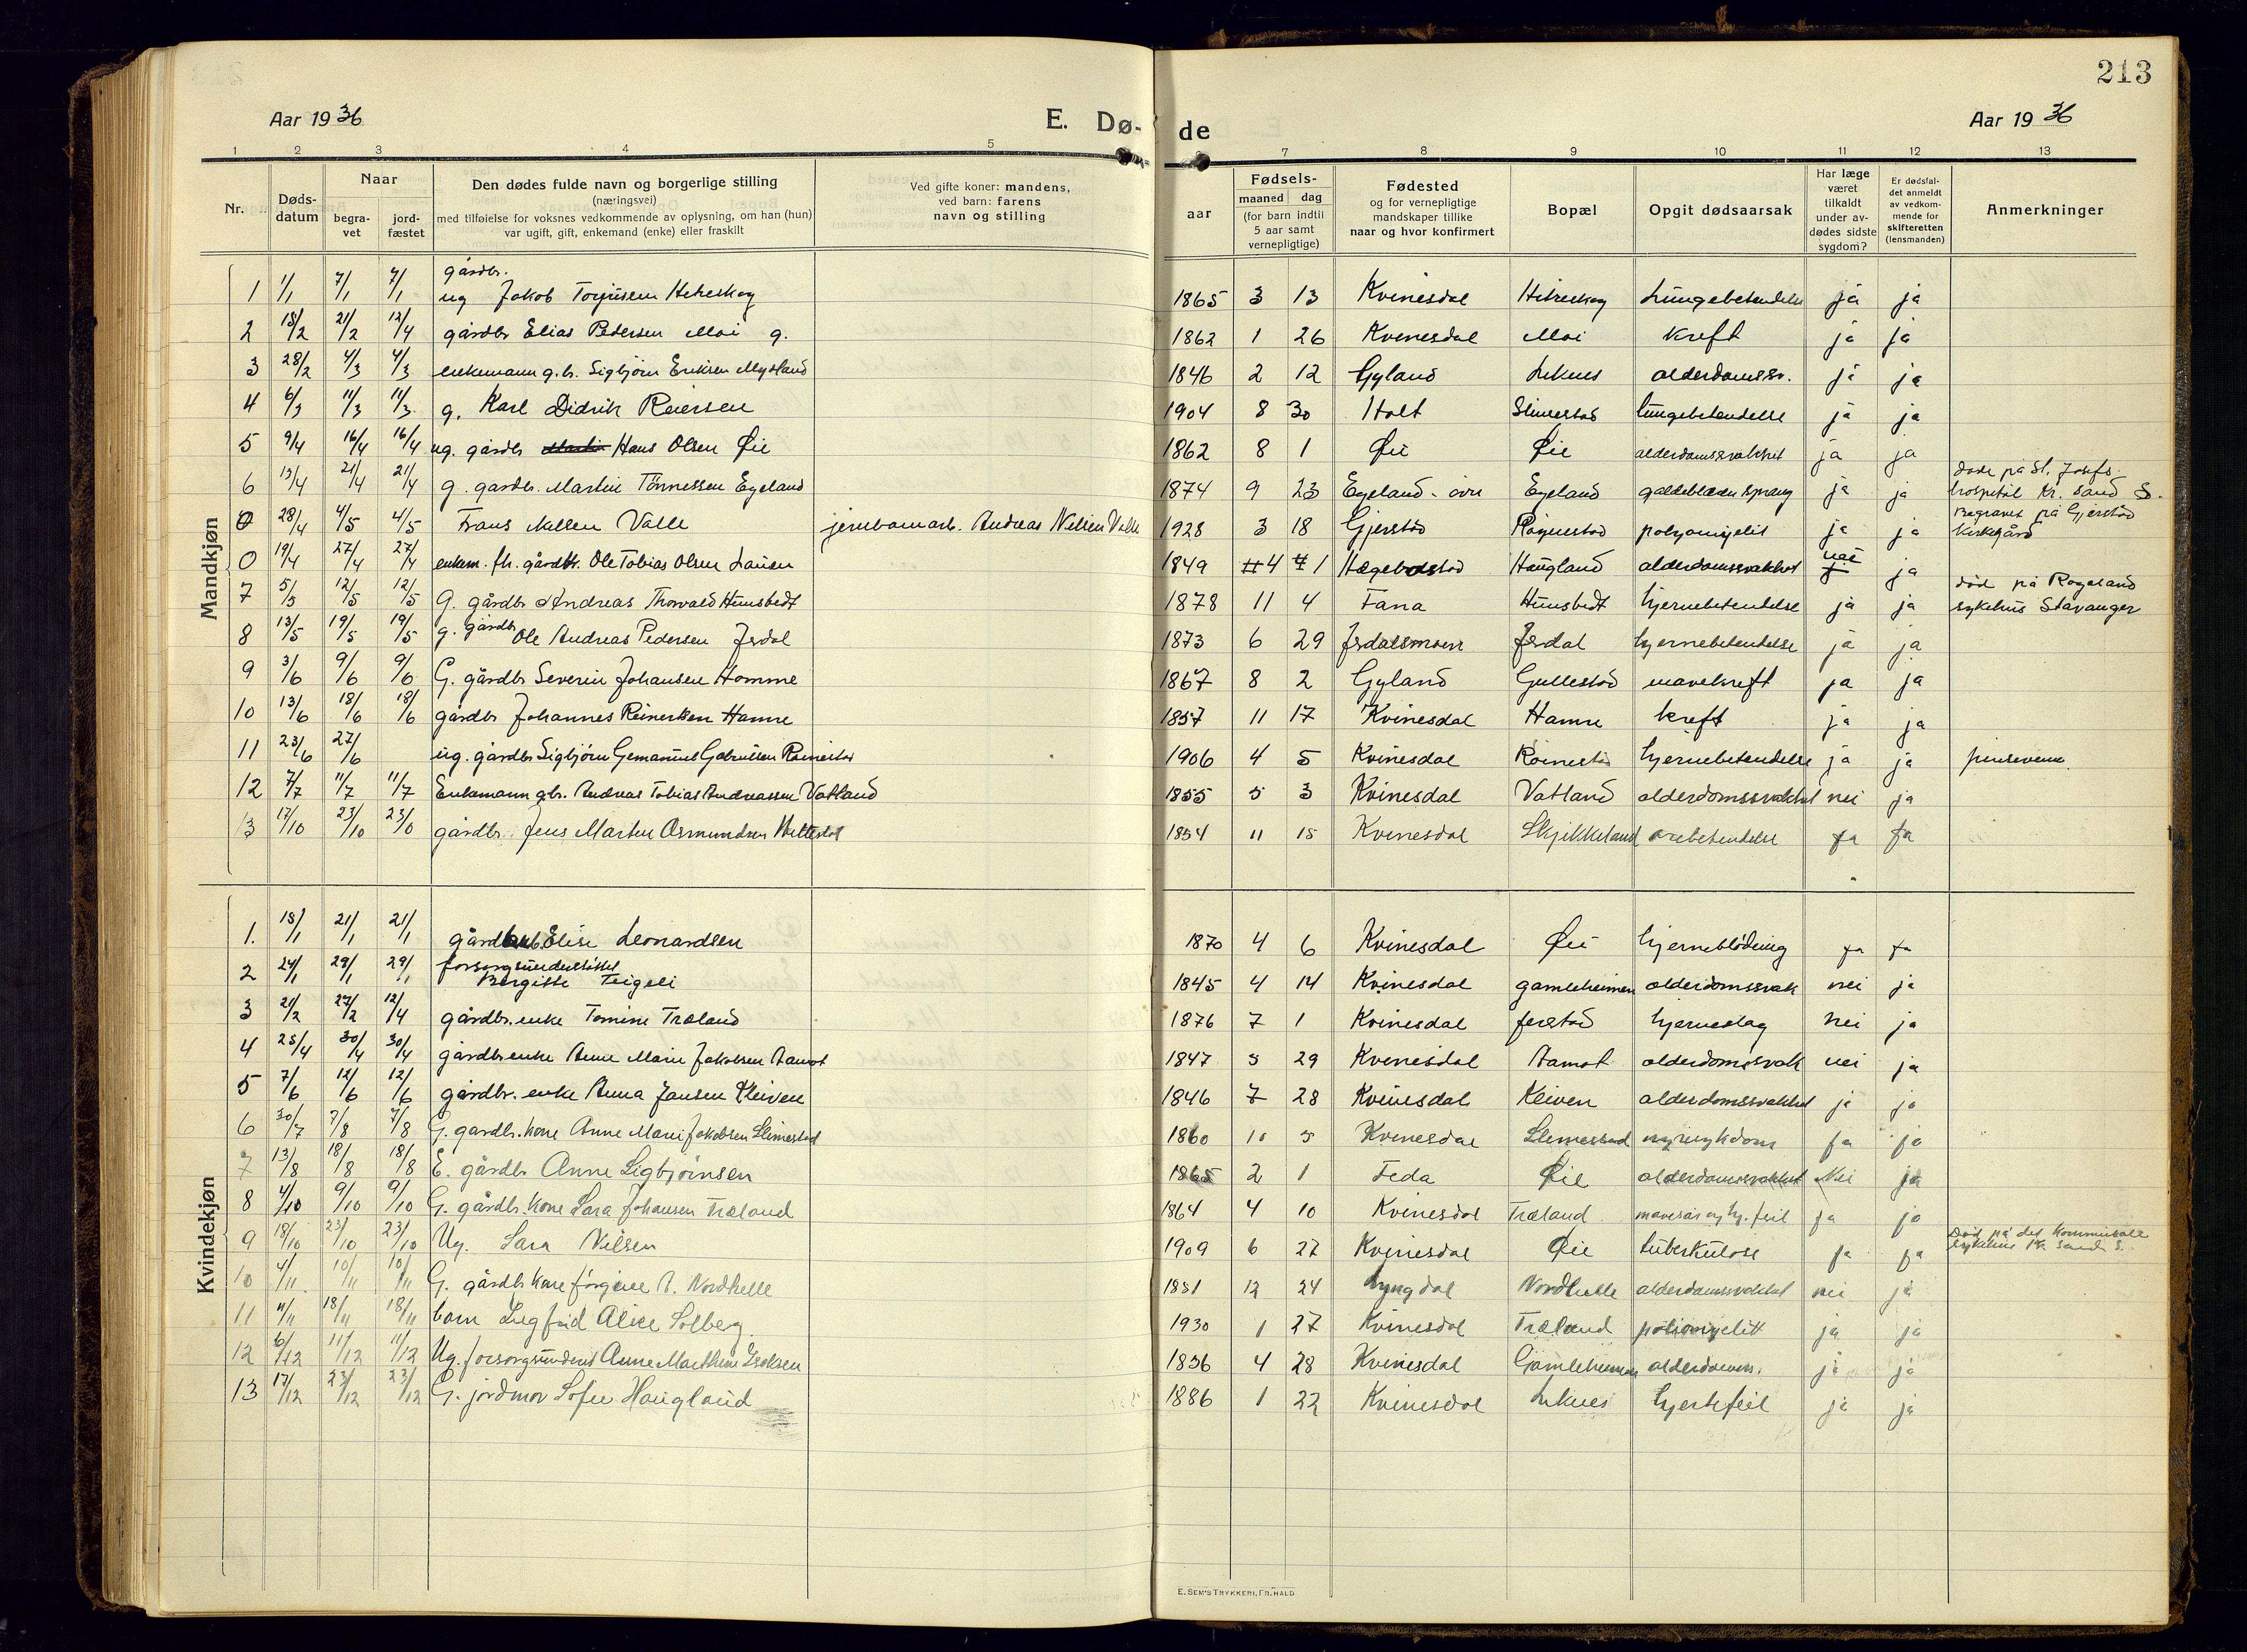 213
Aar 1936 E. Dø- de Aar 1936
1 2 3 4 5 7 8 9 10 11 12 13
Nr. Døds-datum Naar begra-vet jord-fæstet Den dødes fulde navn og borgerlige stilling (næringsvei) med tilføielse for voksnes vedkommende av oplysning, om han (hun) var ugift, gift, enkemand (enke) eller fraskilt Ved gifte koner: mandens, ved barn: farens navn og stilling aar Fødsels- maaned dag (for barn indtil 5 aar samt vernepligtige) Fødested og for vernepligtige mandskaper tillike naar og hvor konfirmert Bopæl Opgit dødsaarsak Har læge været tilkaldt under av-dødes sidste sygdom? Er dødsfal-det anmeldt av vedkom-mende for skifteretten (lensmanden) Anmerkninger
Mandkjøn
1 1/1 7/1 7/1 gårdbr. ug Jakob Torjusen Hetreskog 1865 3 13 Kvinesdal Hetreskog Lungebetendelse ja ja
2 18/2 21/2 12/4 gårdbr Elias Pedersen Moi g. 1862 1 26 Kvinesdal Moi kreft ja ja
3 28/2 4/3 4/3 enkemann g.b. Sigbjørn Eriksen Mysland 1846 2 12 Gyland Liknes alderdomssv. ja ja
4 6/3 11/3 11/3 g. Karl Didrik Reiersen 1904 8 30 Holt Slimestad lungebetendelse ja ja
5 9/4 16/4 16/4 ug. gårdbr Hans Olsen Øie 1862 8 1 Øie Øie alderdomssvakhet ja ja
6 13/4 21/4 21/4 g. gardbr. Martin Tønnessen Egeland 1874 9 23 Egeland - øvre Egeland galdeblæren sprang ja ja døde på St. Josefs. hospital Kr. sand S.
0 28/4 4/5 4/5 Frans Nilsen Valle jernbanearb. Andreas Nilsen Valle 1928 3 18 Gjerstad Røinestad polyomyelit ja ja Begravet på Gjerstad kirkegård
0 19/4 27/4 27/4 enkem. fh. gårdbr. Ole Tobias Olsen Lauen 1849 4 1 Hægebostad Haugland alderdomssvakhet nei ja
7 5/5 12/5 12/5 G. gårdbr Andreas Thorvald Hunsbedt 1878 11 4 Fana Hunsbedt hjernebetendelse ja ja død på Rogaland sykehus Stavanger
8 13/5 19/5 19/5 g. gårdbr Ole Andreas Pedersen Jerdal 1873 6 29 Jerdalsmoen Jerdal hjernebetendelse ja ja
9 3/6 9/6 9/6 G. gårdbr Severin Johansen Homme 1867 8 2 Gyland Gullestad mavekreft ja ja
10 13/6 18/6 18/6 gårdbr Johannes Reinertsen Hamre 1857 11 17 Kvinesdal Hamre kreft ja ja
11 23/6 27/6 ug. gårdbr Sigbjørn Gemanuel Gabrielsen Røinestad 1906 4 5 Kvinesdal Roinestad hjernebetendelse ja ja pinsevenn.
12 7/7 11/7 11/7 Enkemann gbr. Andreas Tobias Andreassen Vatland 1855 5 3 Kvinesdal Vatland alderdomssvakhet nei ja
13 17/10 23/10 23/10 gårdbr. Jens Martin Asmundsen 1854 11 15 Kvinesdal Skjekkeland ja ja
Kvindekjøn
1. 18/1 21/1 21/1 Elise Leonardsen 1870 4 6 Kvinesdal Øie hjerneblødning ja ja
2 24/1 29/1 29/1 forsorgsunderstøttet Bergitte Teigeli 1845 4 14 Kvinesdal gamleheimen alderdomssvak nei ja
3 21/2 27/2 12/4 gårdbr. enke Tomine Træland 1876 7 1 Kvinesdal hjerneslag nei ja
4 25/4 30/4 30/4 gårdbr enke Anne Marie Jakobsen Aamot 1847 5 29 Kvinesdal Aamot alderdomssvak nei ja
5 7/6 12/6 12/6 gårdbr. enke Anna Jansen Kleiven 1846 7 28 Kvinesdal Kleiven alderdomssvakhet ja ja
6 30/7 7/8 7/8 G. gardbr. kone Anne Marie Jakobsen Slimestad 1860 10 5 Kvinesdal Slimestad nyresykdom ja ja
7 13/8 18/8 18/8 E. gårdbr Anne Sigbjørnsen 1865 2 1 Feda Øie alderdomssvakhet Nei ja
8 4/10 9/10 9/10 G. gårdbr. kone Sara Johansen Træland 1864 4 10 Kvinesdal Træland mavesår og hj. feil ja ja
9 18/10 23/10 23/10 Ug. Sara Nilsen 1909 6 27 Kvinesdal Øie tuberkulose ja ja Død på det kommunale sykehus Kr. sand S.
10 4/11 10/11 10/11 G. gårdbr. kone Jørgine A. Nordhelle 1851 12 24 Lyngdal Nordhelle alderdomssvakhet nei ja
11 11/11 18/11 18/11 barn Sigfrid Alise Solberg 1930 1 27 Kvinesdal Træland poliomyelitt ja ja
12 6/12 11/12 11/12 Ug. forsorgsunderst Anne Marthine Isaksen 1836 4 28 Kvinesdal Gamleheimen alderdomsv. ja ja
13 17/12 23/12 23/12 G. jordmor Sofie Haugland 1886 1 22 Kvinesdal Liknes hjertefeil ja ja
E. SEM'S TRYKKERI, FR.HALD